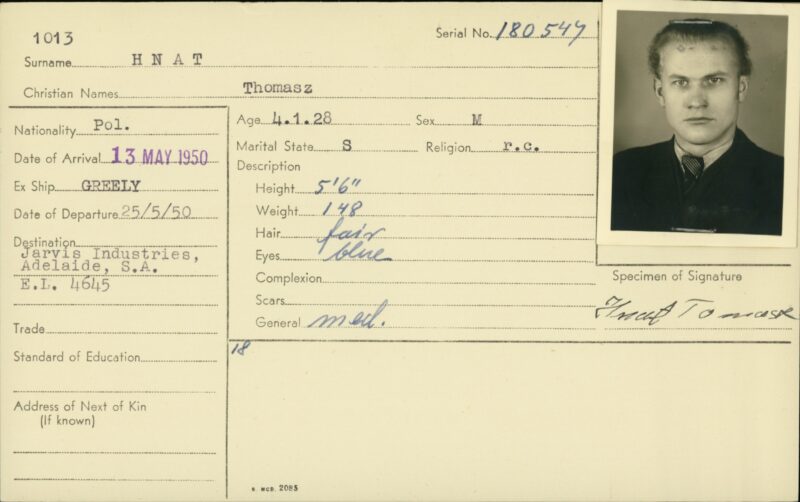 1013
Serial No. 180547
Surname HNAT
Christian Names Thomasz
Nationality Pol.
Date of Arrival 13 MAY 1950
Ex Ship GREELY
Date of Departure 25/5/50
Destination
Jarvis Industries,
Adelaide, S.A.
E.L. 4645
Trade
Standard of Education
Address of Next of Kin
(If known)
Age 4.1.28 Sex M
Marital State S Religion r.c.
Description
Height 5'6"
Weight 148
Hair fair
Eyes blue
Complexion
Scars
General med.
18
Specimen of Signature
Hnat Tomasz
S. MCD. 2085